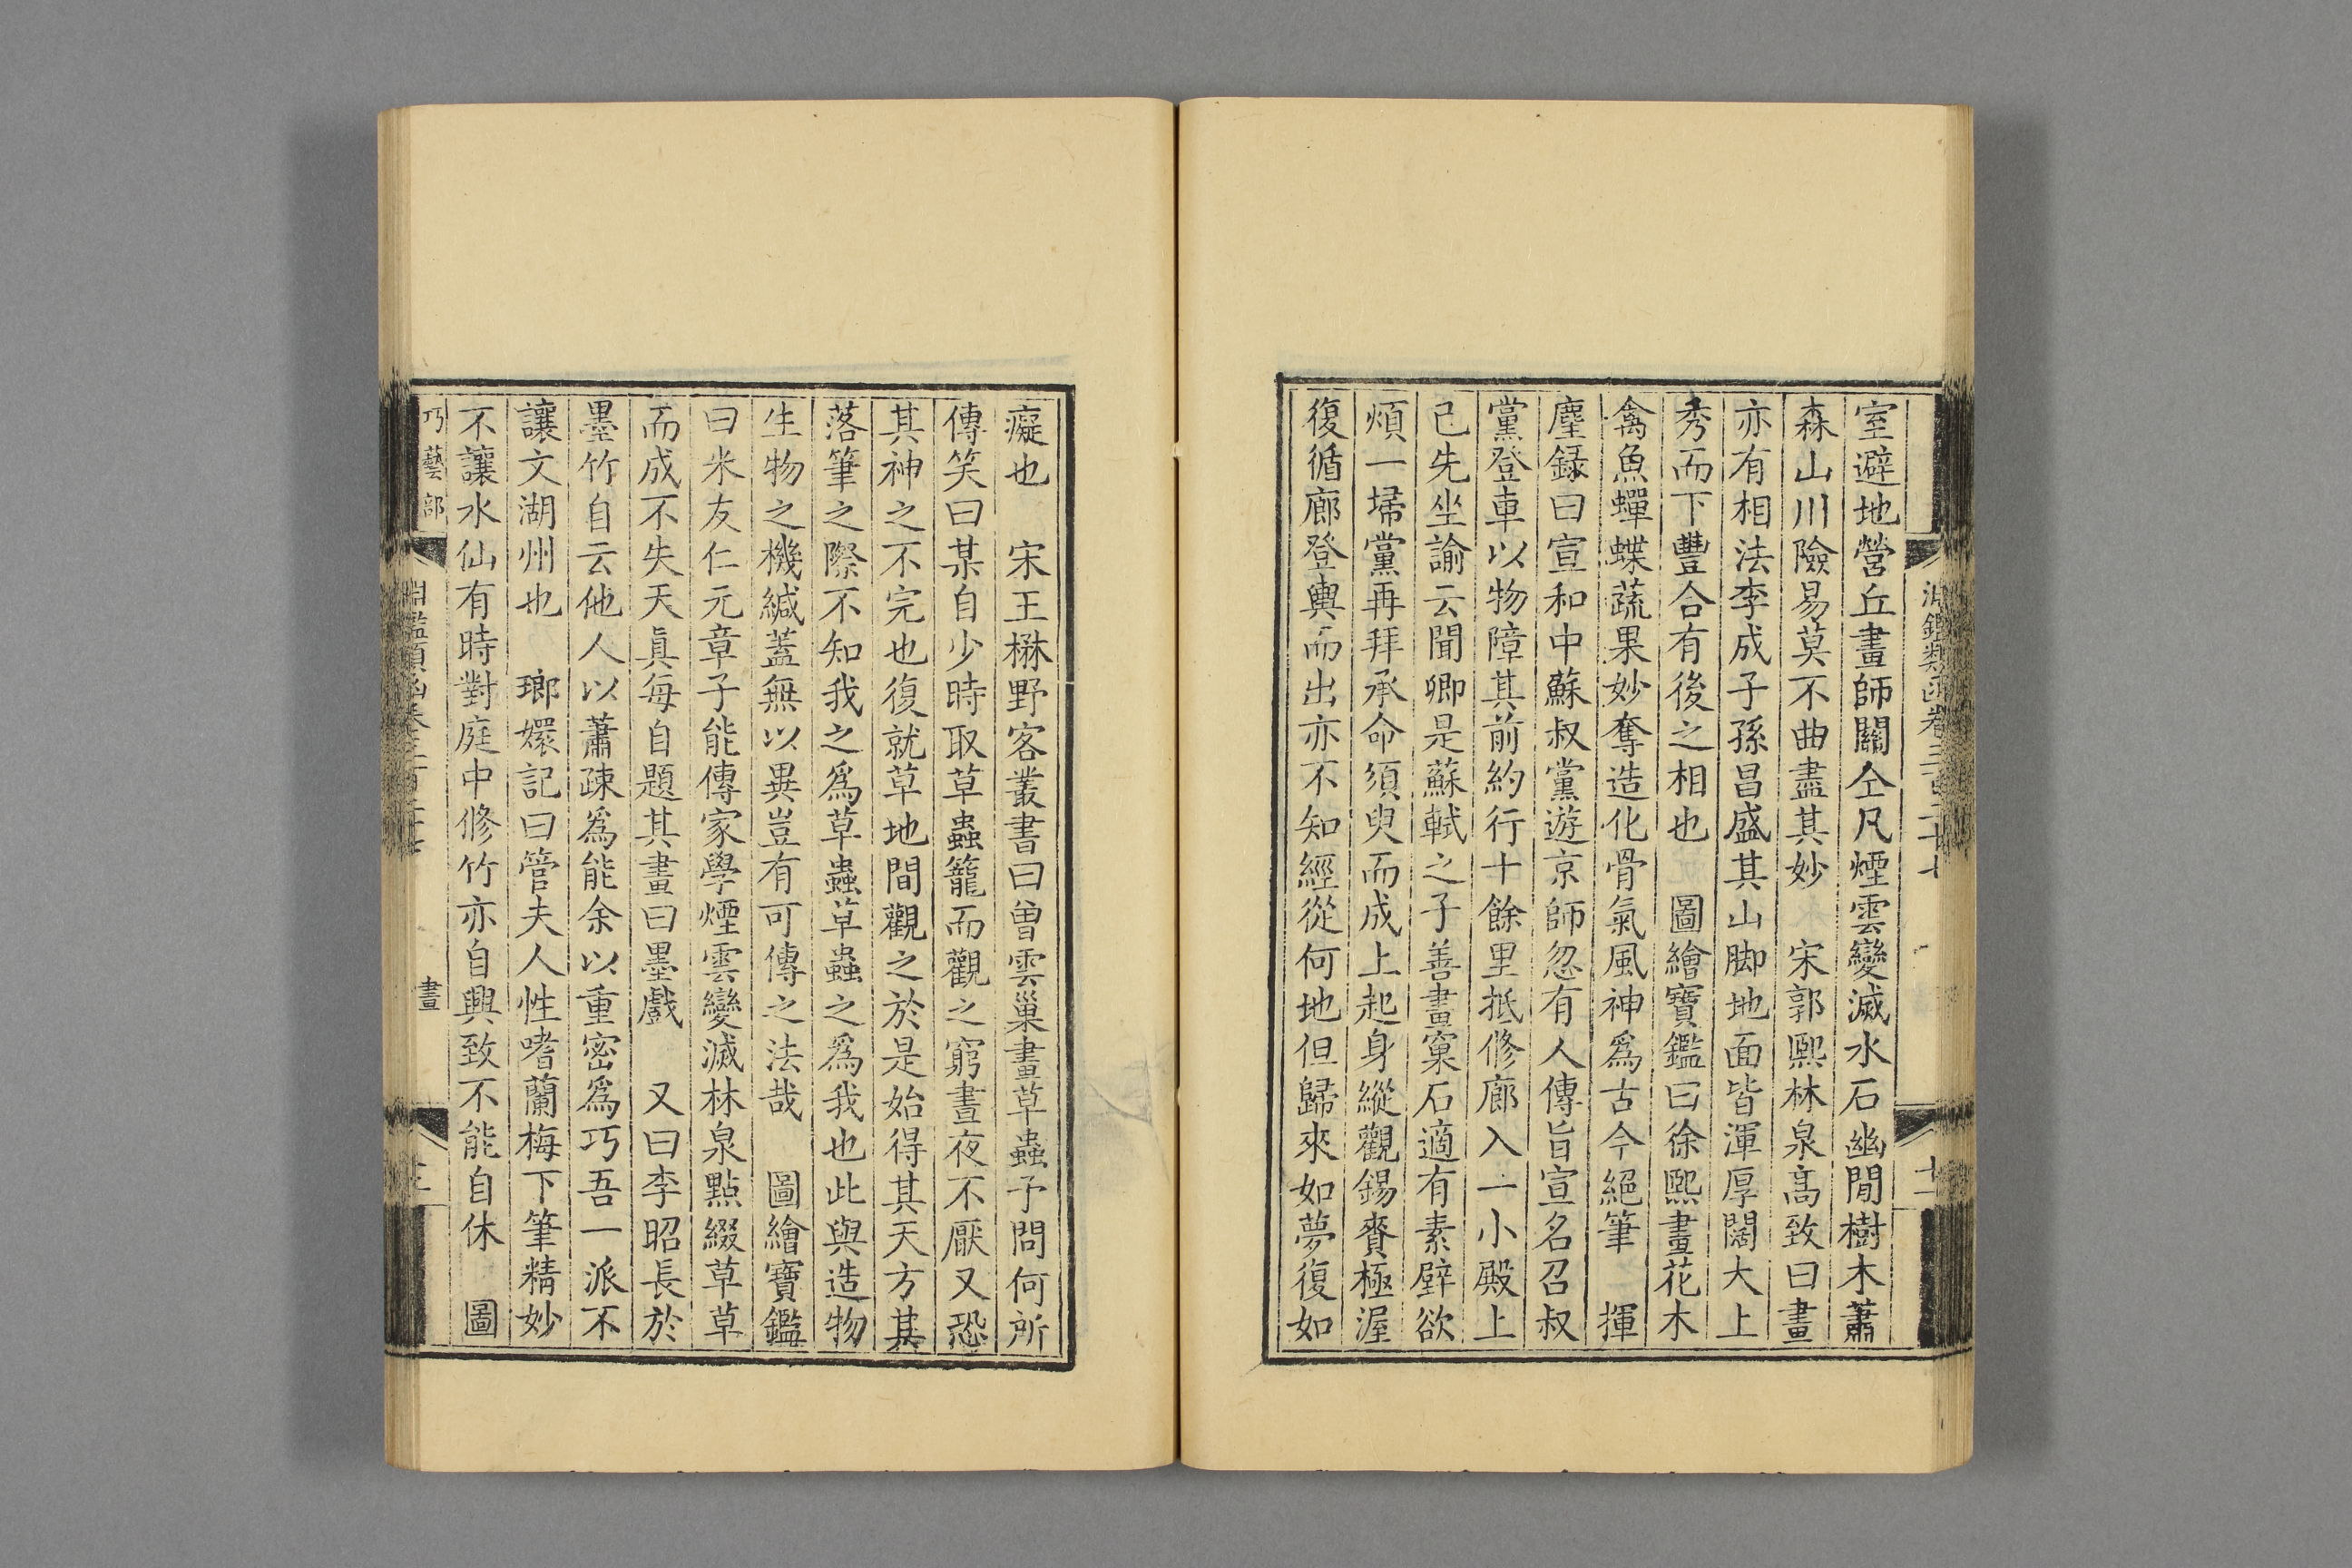 淵鑑類函卷三百二十七
十二
室避地營丘畫師關仝凡煙雲變滅水石幽閒樹木蕭
森山川險易莫不曲盡其妙　宋郭熙林泉高致曰畫
亦有相法李成子孫昌盛其山脚地面皆渾厚闊大上
秀而下豐合有後之相也　圖繪寶鑑曰徐熙畫花木
禽魚蟬蝶蔬果妙奪造化骨氣風神爲古今絕筆　揮
塵録曰宣和中蘇叔黨遊京師忽有人傳旨宣名召叔
黨登車以物障其前約行十餘里抵脩廊入一小殿上
已先坐諭云聞卿是蘇軾之子善畫窠石適有素壁欲
煩一埽黨再拜承命須臾而成上起身縱觀錫賚極渥
復循廊登輿而出亦不知經從何地但歸來如夢復如
癡也　宋王楙野客叢書曰曾雲巢畫草蟲予問何所
傳笑曰某自少時取草蟲籠而觀之窮晝夜不厭又恐
其神之不完也復就草地間觀之於是始得其天方其
落筆之際不知我之爲草蟲草蟲之爲我也此與造物
生物之機緘蓋無以異豈有可傳之法哉　圖繪寶鑑
曰米友仁元章子能傳家學煙雲變滅林泉點綴草草
而成不失天眞每自題其畫曰墨戲　又曰李昭長於
墨竹自云他人以蕭疎爲能余以重密爲巧吾一派不
讓文湖州也　瑯嬛記曰管夫人性嗜蘭梅下筆精妙
不讓水仙有時對庭中修竹亦自興致不能自休　圖
巧藝部
畫